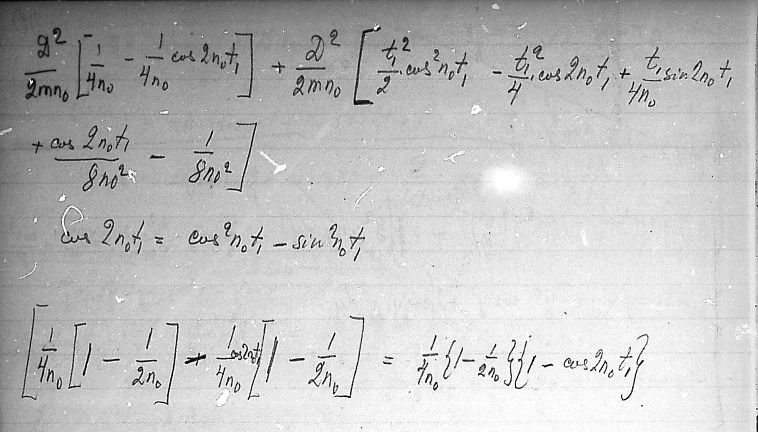 𝒟²/2mn₀ [1/4n₀ − 1/4n₀ cos 2n₀t₁] + 𝒟²/2mn₀ [t₁²/2 cos²n₀t₁ − t₁²/4 cos 2n₀t₁ + t₁/4n₀ sin 2n₀t₁
+ cos 2n₀t₁/8n₀² − 1/8n₀²]
cos 2n₀t₁ = cos²n₀t₁ − sin²n₀t₁
[1/4n₀ [1 − 1/2n₀] − 1/4n₀ cos2n₀t₁ [1 − 1/2n₀] = 1/4n₀ {1 − 1/2n₀}{1 − cos 2n₀t₁}